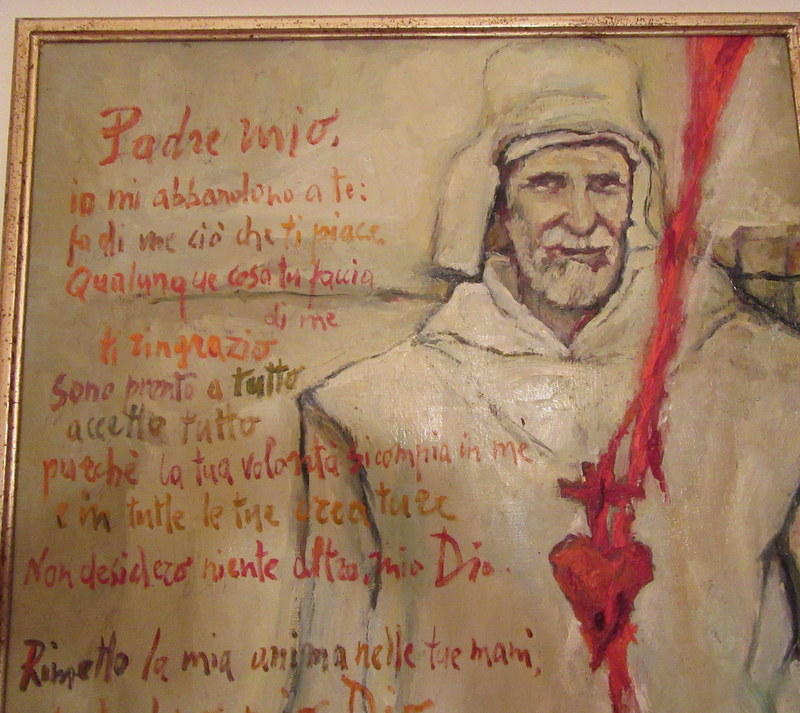 Padre mio,
io mi abbandono a te:
fa di me ciò che ti piace.
Qualunque cosa tu faccia
di me
ti ringrazio
Sono pronto a tutto
accetto tutto
purchè la tua volontà si compia in me
e in tutte le tue creature
Non desidero niente altro, mio Dio.
Rimetto la mia anima nelle tue mani,
mio Dio